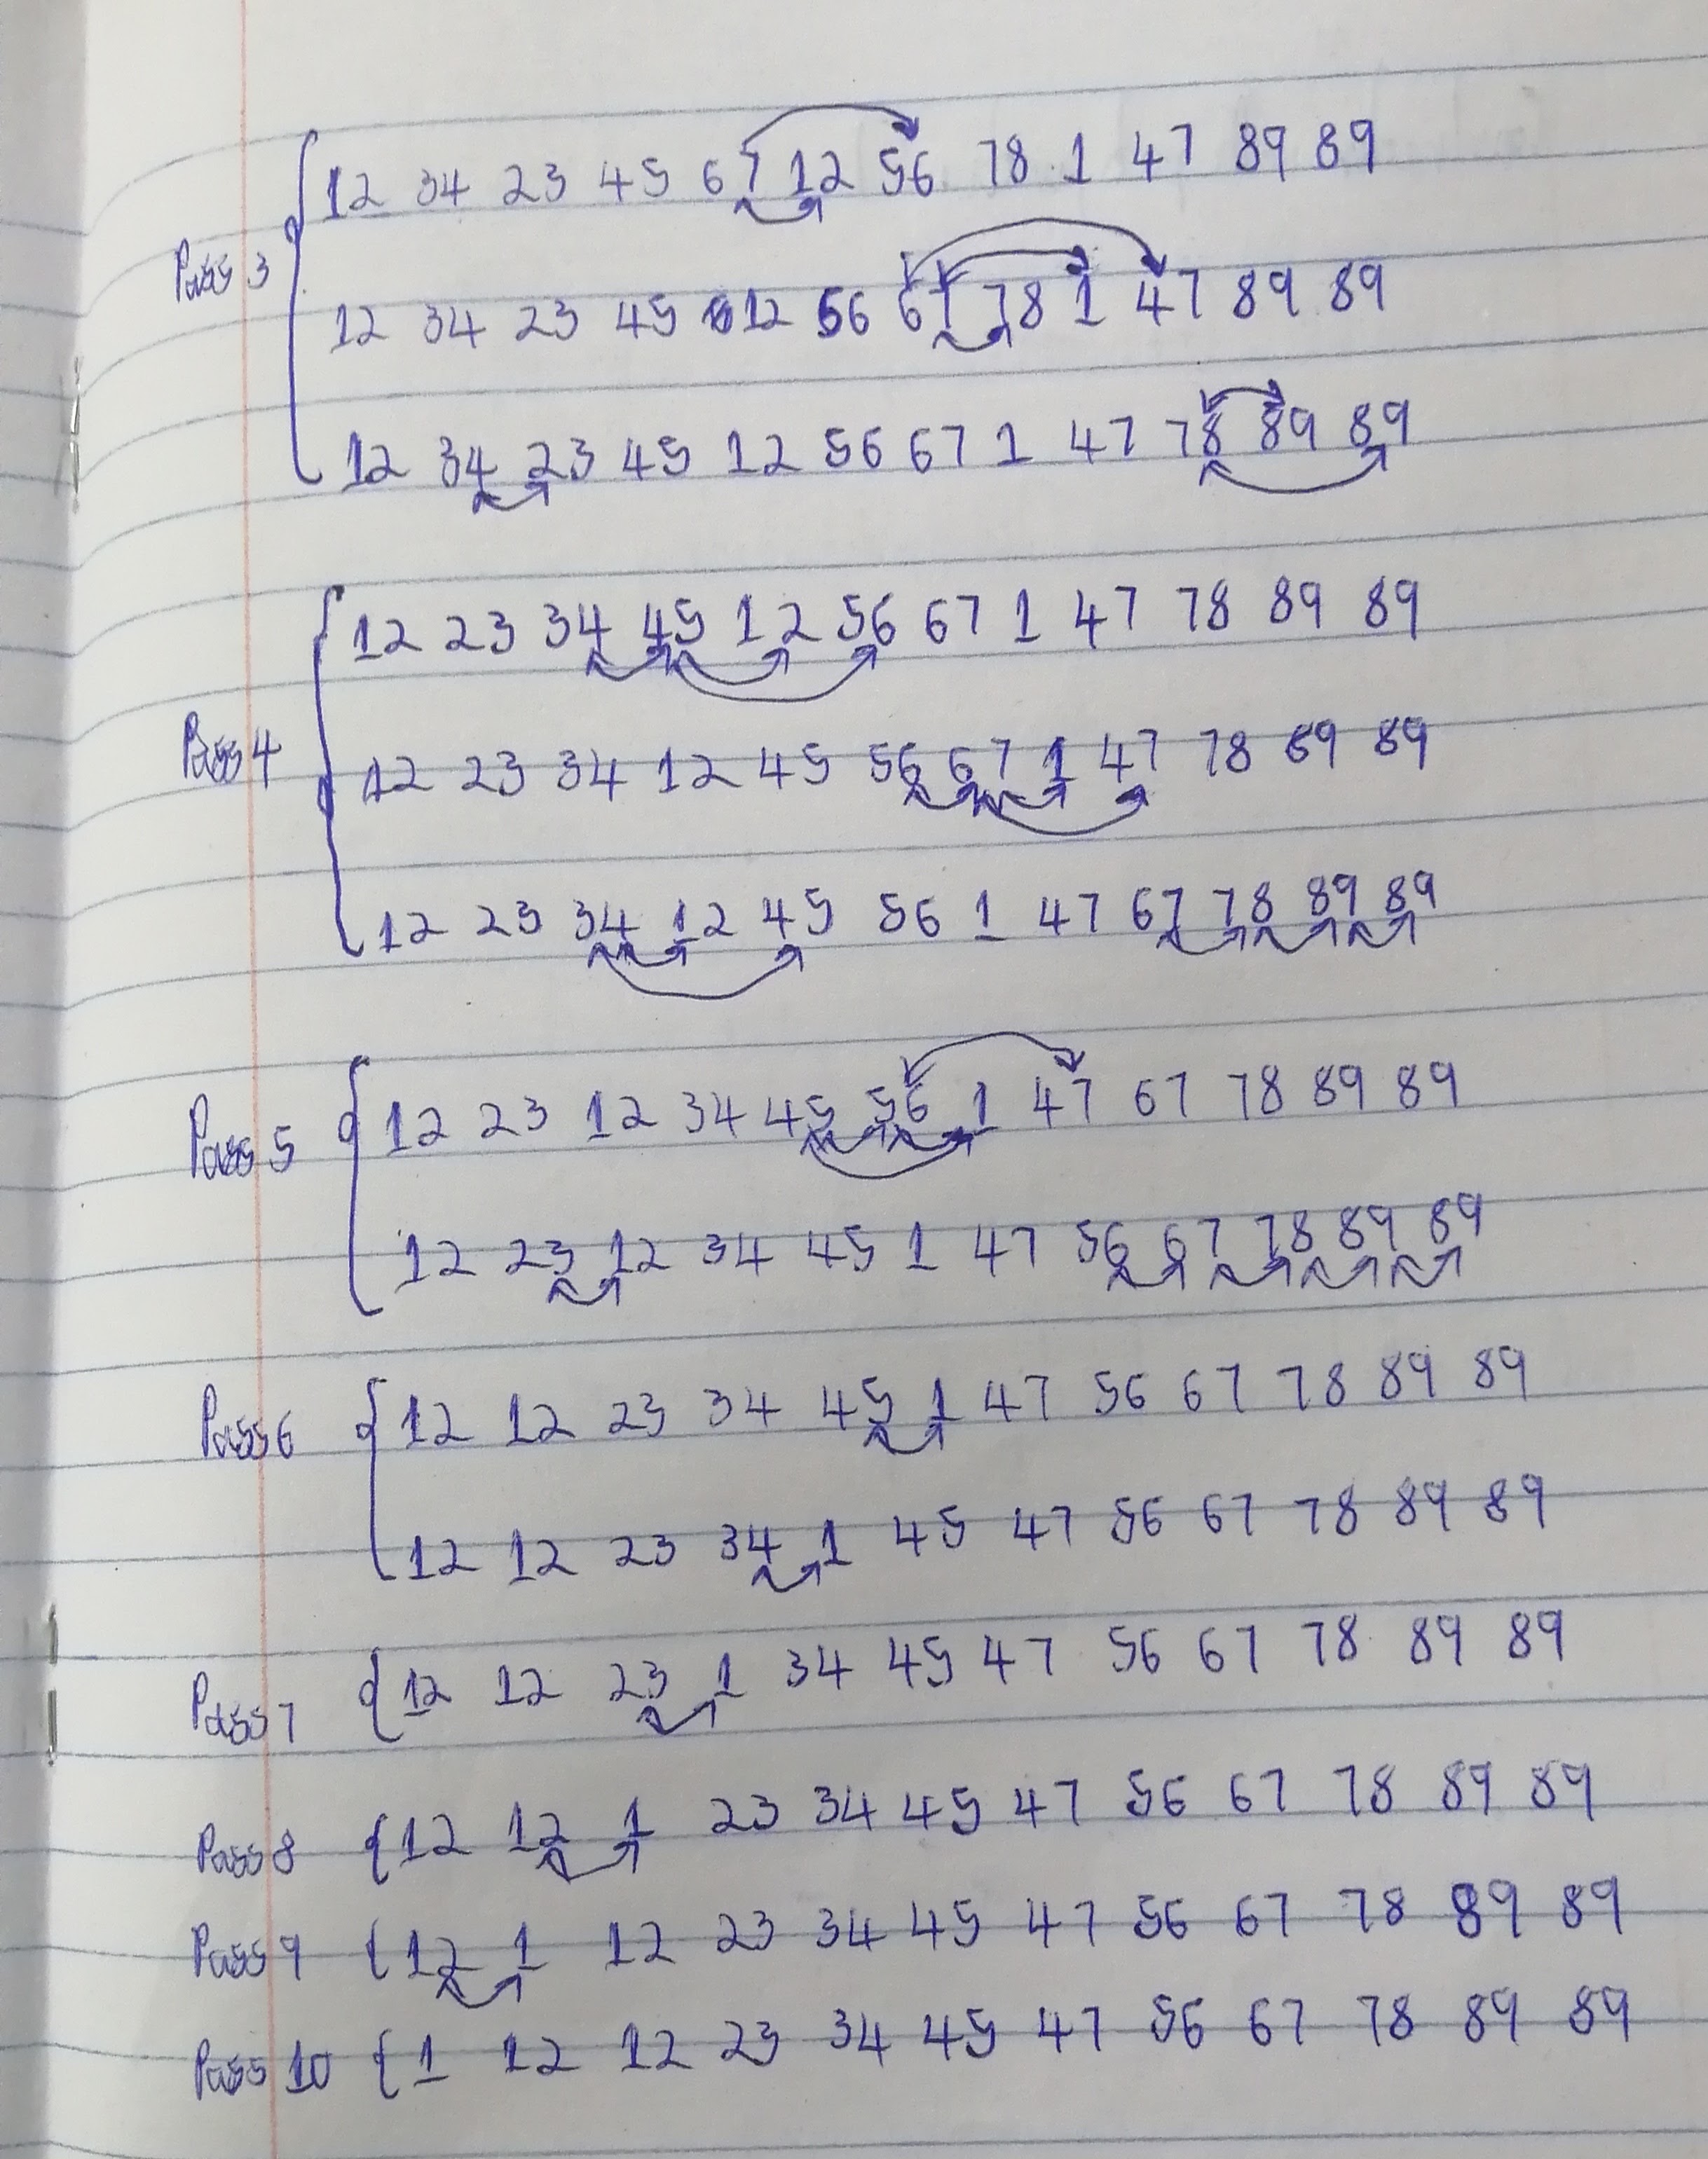 12 34 23 45 67 12 56 78 1 47 89 89
Pass 3
12 34 23 45 12 56 67 78 1 47 89 89
12 34 23 45 12 56 67 1 47 78 89 89
12 23 34 45 12 56 67 1 47 78 89 89
Pass 4
12 23 34 12 45 56 67 1 47 78 89 89
12 23 34 12 45 56 1 47 67 78 89 89
Pass 5 12 23 12 34 45 56 1 47 67 78 89 89
12 23 12 34 45 1 47 56 67 78 89 89
Pass 6 12 12 23 34 45 1 47 56 67 78 89 89
12 12 23 34 1 45 47 56 67 78 89 89
Pass 7 12 12 23 1 34 45 47 56 67 78 89 89
Pass 8 12 12 1 23 34 45 47 56 67 78 89 89
Pass 9 12 1 12 23 34 45 47 56 67 78 89 89
Pass 10 1 12 12 23 34 45 47 56 67 78 89 89